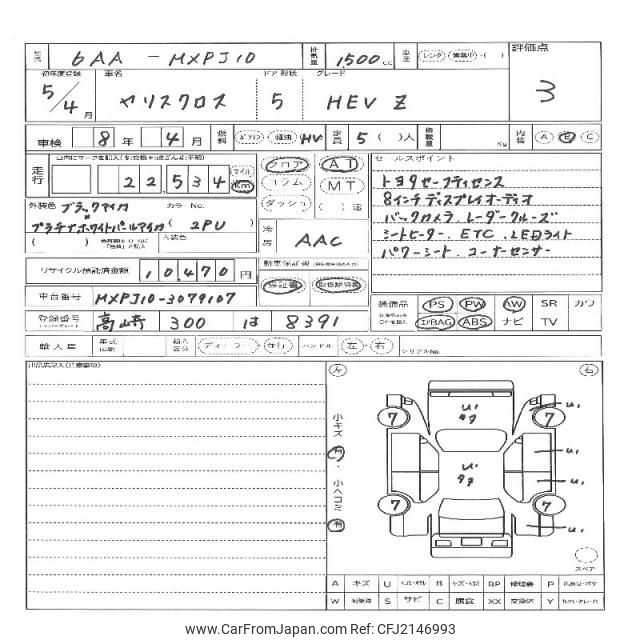 型式 6AA - MXPJ10 排気量 1,500 cc 車歴 レンタ 営業中・( ) 評価点
3
初年度登録 車名 ドア 形状 グレード
5/4月 ヤリスクロス 5 HEV Z
車検 8年 4月 燃料 ガソリン 軽油 HV 定員 5( )人 積載量 Kg 内装 A B C
走行 22,534 マイル Km
フロア コラム ダッシュ AT MT ( )速
外装色 ブラックマイカ カラー No.
× プラチナホワイトパールマイカ ( 2PU )
( ) 内装色
冷房 AAC
リサイクル預託済金額 10,470 円
新車保証書 保証書 取扱説明書
車台番号 MXPJ10-3079107
登録番号 高崎 300 は 8391
セールスポイント
トヨタセーフティセンス
8インチディスプレイオーディオ
バックカメラ・レーダークルーズ
シートヒーター. ETC. LEDライト
パワーシート. コーナーセンサー
装備品 PS PW AW SR カワ
AIRBAG ABS ナビ TV
輸入車 年式 輸入区分 ディーラー・並行 ハンドル 左・右 シリアルNo.
左 右
小キズ 有・小ヘコミ 有
7 7 7 7
U1 U1 U1 U1 U1
スペア
A キズ U B BP P
W S サビ C 腐食 XX Y
www.CarFromJapan.com - CFJ2146993